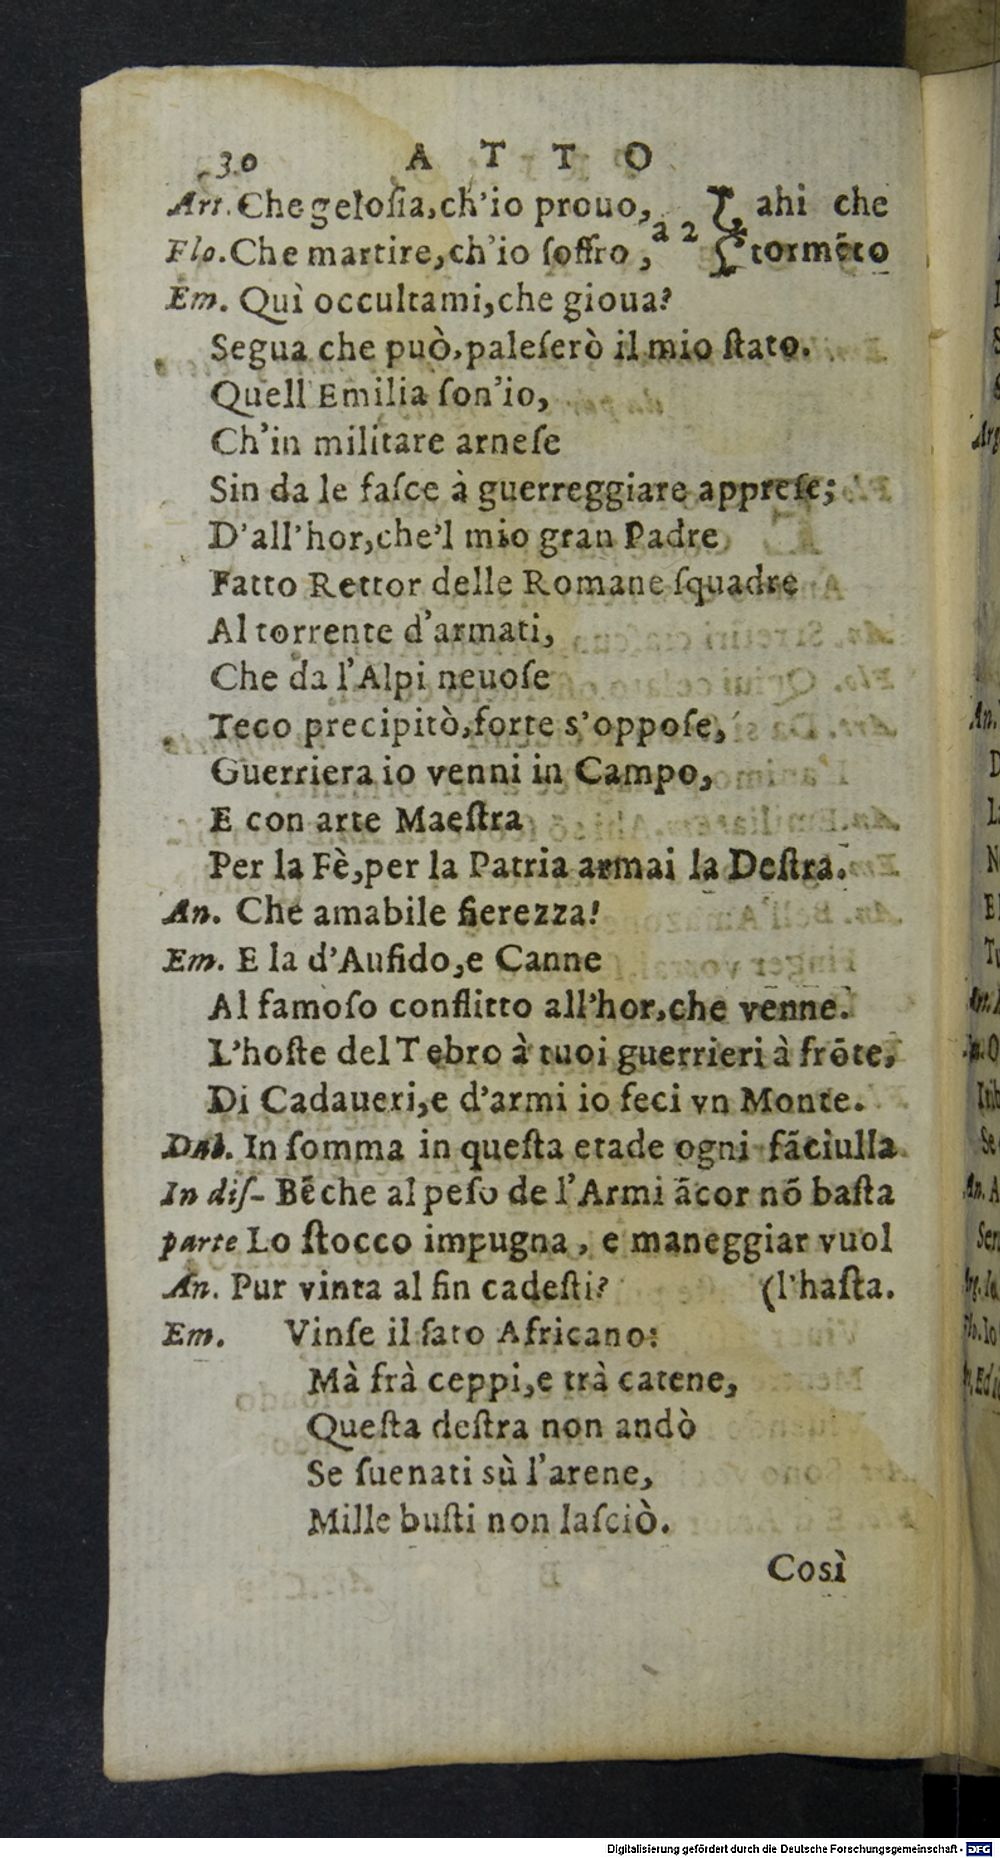 30 ATTO
Art. Che gelosia, ch'io prouo, a 2 ahi che
Flo. Che martire, ch'io ſoffro, tormẽto
Em. Quì occultami, che gioua?
Segua che può, paleſerò il mio ſtato.
Quell Emilia ſon'io,
Ch'in militare arneſe
Sin da le faſce à guerreggiare appreſe;
D'all'hor, che'l mio gran Padre
Fatto Rettor delle Romane ſquadre
Al torrente d'armati,
Che da l'Alpi neuoſe
Teco precipitò, forte s'oppoſe,
Guerriera io venni in Campo,
E con arte Maeſtra
Per la Fè, per la Patria armai la Deſtra.
An. Che amabile fierezza!
Em. E la d'Aufido, e Canne
Al famoſo conflitto all'hor, che venne.
L'hoſte del Tebro à tuoi guerrieri à frõte,
Di Cadaueri, e d'armi io feci vn Monte.
Dal. In ſomma in queſta etade ogni fãciulla
In diſ- Bẽche al peſo de l'Armi ãcor nõ baſta
parte Lo ſtocco impugna, e maneggiar vuol
An. Pur vinta al fin cadeſti? (l'haſta.
Em. Vinſe il fato Africano:
Mà frà ceppi, e trà catene,
Queſta deſtra non andò
Se ſuenati sù l'arene,
Mille buſti non laſciò.
Così
Digitalisierung gefördert durch die Deutsche Forschungsgemeinschaft - DFG